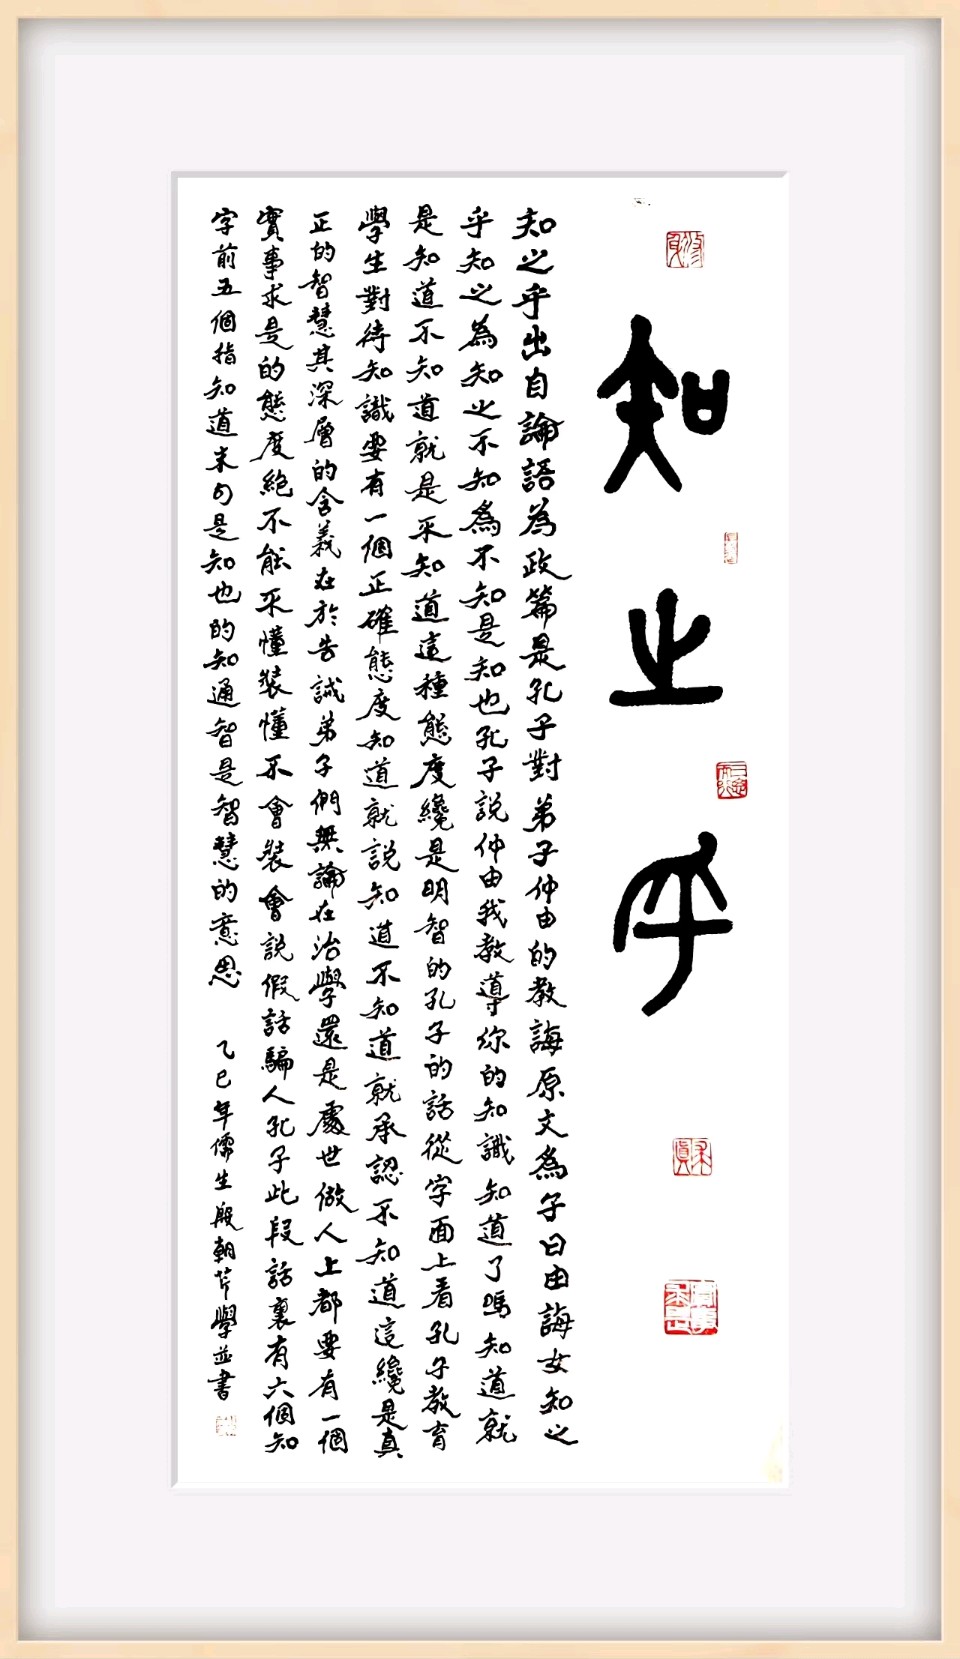 知之乎
知之乎出自論語為政篇是孔子對弟子仲由的教誨原文為子曰由誨女知之
乎知之為知之不知為不知是知也孔子說仲由我教導你的知識知道了嗎知道就
是知道不知道就是不知道這種態度纔是明智的孔子的話從字面上看孔子教育
學生對待知識要有一個正確態度知道就說知道不知道就承認不知道這纔是真
正的智慧其深層的含義在於告誡弟子們無論在治學還是處世做人上都要有一個
實事求是的態度絕不能不懂裝懂不會裝會說假話騙人孔子此段話裏有六個知
字前五個指知道末句是知也的知通智是智慧的意思
乙巳年儒生殷朝芹學並書